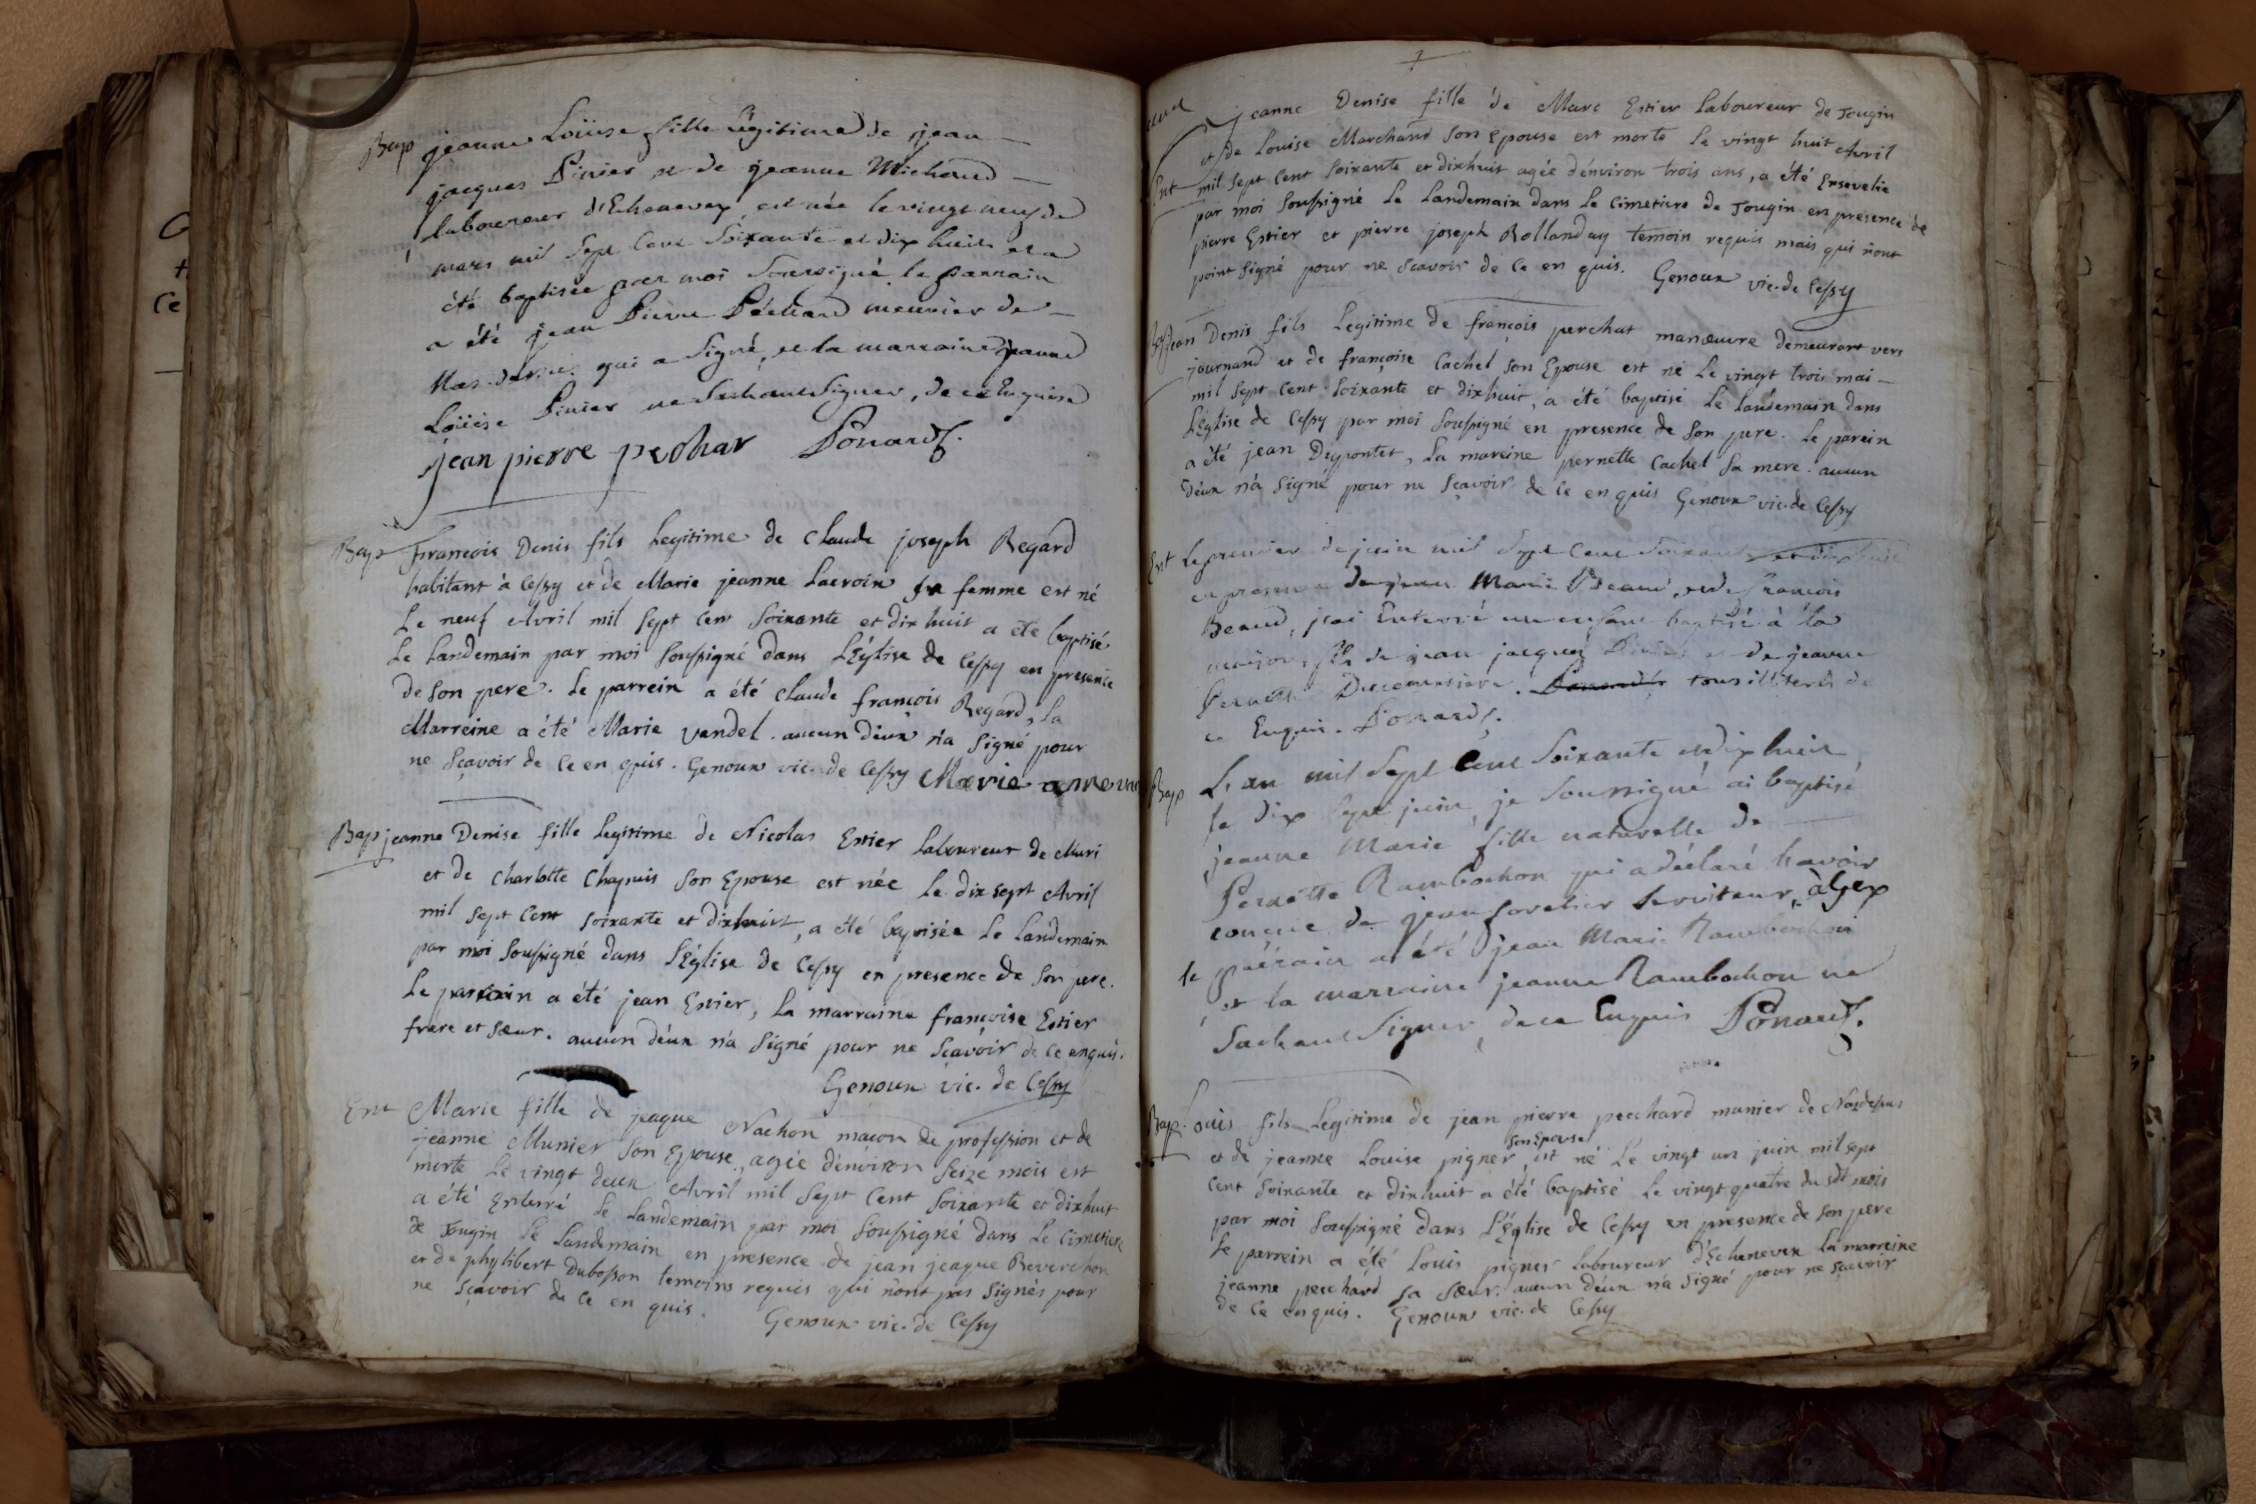 Bap jeanne Loüise fille légitime de jean
jacques Pinier et de jeanne Michaud
laboureur d'Echenevex, est née le vingt neuf de
mars mil sept cent soixante et dix huit et a
été baptisée par moi soussigné, le parrain
a été jean Pierre Péchard meunier de
qui a signé, et la marraine jeanne
Loüise Pinier ne sachant signer, de ce Enquise
jean pierre pechar Ponard
Bap François Denis fils legitime de Claude joseph Regard
habitant à Cessy et de Marie jeanne Lacroix sa femme est né
Le neuf Avril mil sept cen soixante et dix huit a été baptisé
Le Landemain par moi soussigné dans L'Église de Cessy en presence
de son pere. Le parrein a été claude françois Regard, La
Marreine a été Marie vandel. aucun d'eux n'a signé pour
ne sçavoir de ce en quis. Genoux vic. de Cessy Marie anne van
Bap jeanne Denise fille legitime de Nicolas Estier Laboureur de Muri
et de Charlotte Chapuis son Epouse est née Le dix sept Avril
mil sept cent soixante et dixhuit, a été baptisée Le Landemain
par moi soussigné dans L'Église de Cessy en presence de son pere.
Le parrein a été jean Estier, La marraine françoise Estier
frere et sœur. aucun d'eux n'a signé pour ne sçavoir de ce enquis.
Genoux vic. de Cessy
Ent Marie fille de jeaque Nachon maçon de profession et de
jeanne Munier son Epouse, agée d'environ seize mois est
morte Le vingt deux Avril mil sept cent soixante et dixhuit
a été Enterré Le Landemain par moi soussigné dans Le Cimetiere
de Tougin Le Landemain en presence de jean jeaque Reverchon
et de phylibert Dubosson temoins requis qui n'ont pas signés pour
ne sçavoir de ce en quis. Genoux vic. de Cessy
jeanne Denise fille de Marc Estier Laboureur de Tougin
et de Louise Marchand son Epouse est morte Le vingt huit Avril
Ent mil sept cent soixante et dixhuit agée d'environ trois ans, a été Ensevelie
par moi soussigné Le Landemain dans Le cimetiere de Tougin en presence de
pierre Estier et pierre joseph Rollanday temoin requis mais qui n'ont
point signé pour ne sçavoir de ce en quis. Genoux vic. de Cessy
Bap Jean Denis fils Legitime de françois perchat manœuvre demeurant vers
journand et de françoise Cachel son Epouse est né Le vingt trois mai
mil sept cent soixante et dixhuit, a été baptisé Le Landemain dans
L'Église de Cessy par moi soussigné en presence de son pere. Le parein
a été jean Depontet, La mareine pernette Cachel sa mere. aucun
d'eux n'a signé pour ne sçavoir de ce en quis Genoux vic. de Cessy
Ent Le premier de juin mil sept cent soixante et dix huit
en presence de jean Marie Beaud, et de François
Beaud, j'ai Enterré un enfant baptisé à la
maison, fils de jean jacques et de jeanne
tous illiterés de
ce Enquis. Ponard.
Bap L'an mil sept Cent soixante et dix huit
le dix sept juin, je soussigné ai baptisé
jeanne Marie fille naturelle de
Pernette Rambochon qui a déclaré l'avoir
conçue de jean Sorelier serviteur à Gex
le parrain a été jean Marie Rambochon
et la marreine jeanne Rambochon ne
sachant signer, de ce Enquis Ponard.
Bap. Louis fils Legitime de jean pierre pecchard munier de
et de jeanne Louise pigner son Epouse, est né Le vingt un juin mil sept
cent soixante et dixhuit a été baptisé Le vingt quatre du sdt mois
par moi soussigné dans L'Église de Cessy en presence de son pere
Le parrein a été Louis pigner Laboureur d'Echenevex La marreine
jeanne pecchard sa sœur. aucun d'eux n'a signé pour ne sçavoir
de ce enquis. Genoux vic. de Cessy